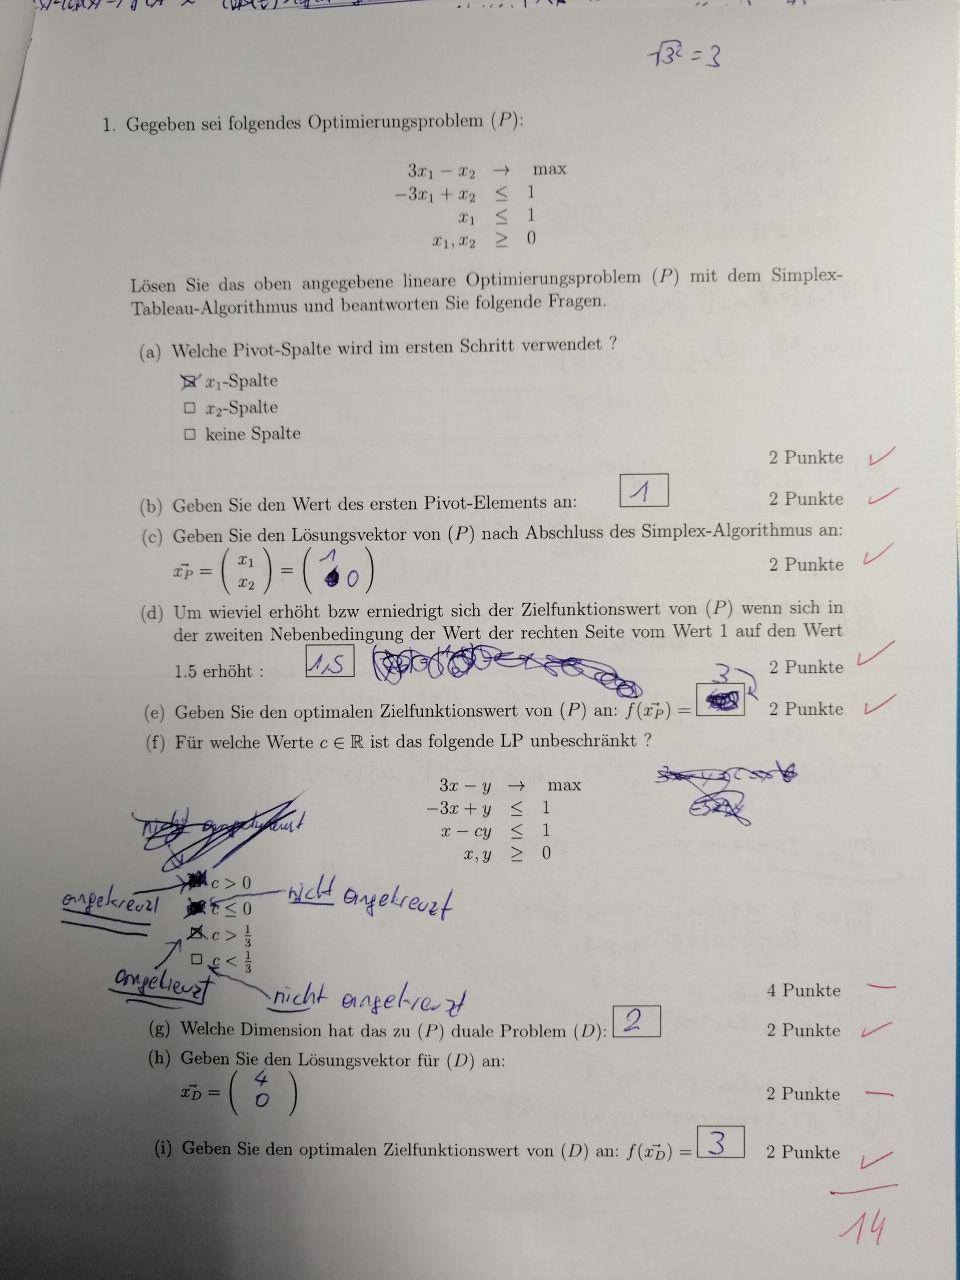 √3² = 3
1. Gegeben sei folgendes Optimierungsproblem (P):
3x₁ − x₂ → max
−3x₁ + x₂ ≤ 1
x₁ ≤ 1
x₁, x₂ ≥ 0
Lösen Sie das oben angegebene lineare Optimierungsproblem (P) mit dem Simplex-
Tableau-Algorithmus und beantworten Sie folgende Fragen.
(a) Welche Pivot-Spalte wird im ersten Schritt verwendet ?
☒ x₁-Spalte
☐ x₂-Spalte
☐ keine Spalte
2 Punkte ✓
(b) Geben Sie den Wert des ersten Pivot-Elements an: 1 2 Punkte ✓
(c) Geben Sie den Lösungsvektor von (P) nach Abschluss des Simplex-Algorithmus an:
x⃗_P = (x₁ x₂) = (1 0) 2 Punkte ✓
(d) Um wieviel erhöht bzw erniedrigt sich der Zielfunktionswert von (P) wenn sich in
der zweiten Nebenbedingung der Wert der rechten Seite vom Wert 1 auf den Wert
1.5 erhöht : 1,5 2 Punkte ✓
(e) Geben Sie den optimalen Zielfunktionswert von (P) an: f(x⃗_P) = 3 2 Punkte ✓
(f) Für welche Werte c ∈ ℝ ist das folgende LP unbeschränkt ?
3x − y → max
−3x + y ≤ 1
x − cy ≤ 1
x, y ≥ 0
nicht angekreuzt
angekreuzt
☒ c > 0
☒ c ≤ 0 nicht angekreuzt
☒ c > 1/3
☐ c < 1/3
angekreuzt
nicht angekreuzt
4 Punkte —
(g) Welche Dimension hat das zu (P) duale Problem (D): 2 2 Punkte ✓
(h) Geben Sie den Lösungsvektor für (D) an:
x⃗_D = (4 0) 2 Punkte —
(i) Geben Sie den optimalen Zielfunktionswert von (D) an: f(x⃗_D) = 3 2 Punkte ✓
14